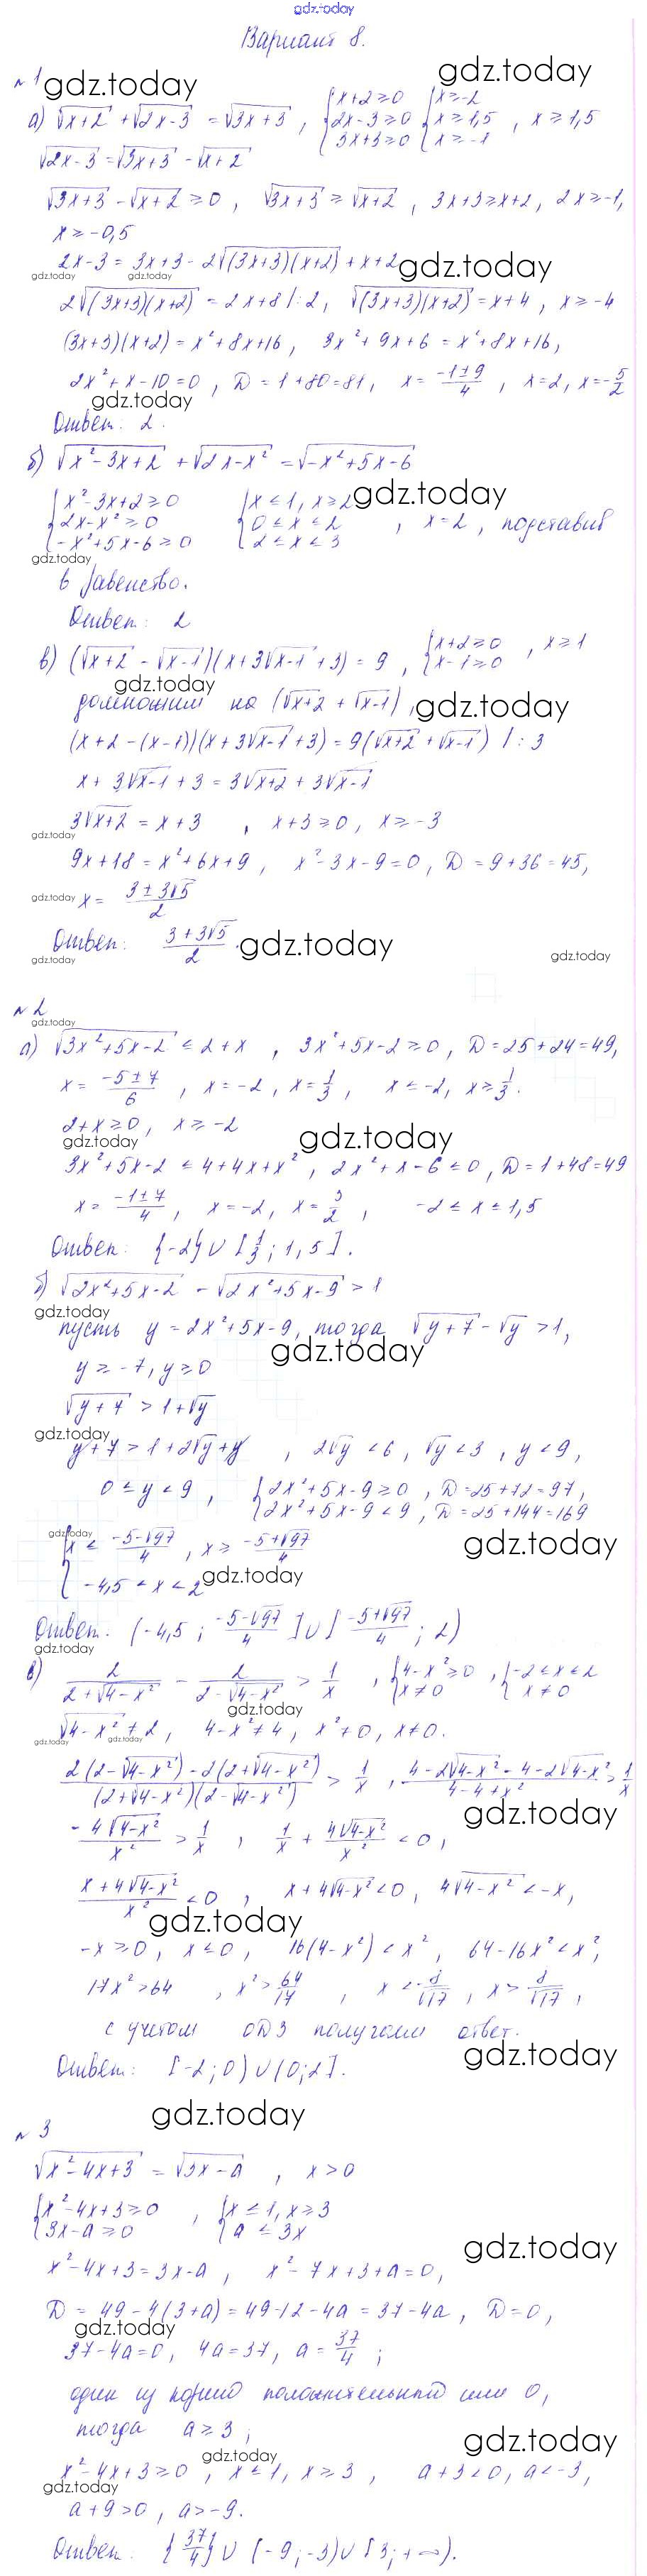 gdz.today
Вариант 8.
№1 gdz.today gdz.today
а) √(x+2) + √(2x-3) = √(3x+3), {x+2≥0 {x≥-2
{2x-3≥0 {x≥1,5, x≥1,5
{3x+3≥0 {x≥-1
√(2x-3) = √(3x+3) - √(x+2)
√(3x+3) - √(x+2) ≥ 0, √(3x+3) ≥ √(x+2), 3x+3≥x+2, 2x≥-1,
x≥-0,5
2x-3 = 3x+3 - 2√((3x+3)(x+2)) + x+2 gdz.today
gdz.today gdz.today
2√((3x+3)(x+2)) = 2x+8 |:2, √((3x+3)(x+2)) = x+4, x≥-4
(3x+3)(x+2) = x²+8x+16, 3x²+9x+6 = x²+8x+16,
2x²+x-10=0, D=1+80=81, x= (-1±9)/4, x=2, x=-5/2
gdz.today
Ответ: 2.
б) √(x²-3x+2) + √(2x-x²) = √(-x²+5x-6)
{x²-3x+2≥0 {x≤1, x≥2 gdz.today
{2x-x²≥0 {0≤x≤2, x=2, подставив
{-x²+5x-6≥0 {2≤x≤3
gdz.today
в равенство.
Ответ: 2
в) (√(x+2) - √(x-1))(x+3√(x-1)+3) = 9, {x+2≥0, x≥1
{x-1≥0
gdz.today
домножим на (√(x+2) + √(x-1)), gdz.today
(x+2-(x-1))(x+3√(x-1)+3) = 9(√(x+2) + √(x-1)) |:3
x+3√(x-1)+3 = 3√(x+2)+3√(x-1)
3√(x+2) = x+3, x+3≥0, x≥-3
gdz.today
9x+18 = x²+6x+9, x²-3x-9=0, D=9+36=45,
gdz.today x= (3±3√5)/2
Ответ: (3+3√5)/2. gdz.today
gdz.today gdz.today
№2
gdz.today
а) √(3x²+5x-2) ≤ 2+x, 3x²+5x-2≥0, D=25+24=49,
x= (-5±7)/6, x=-2, x=1/3, x≤-2, x≥1/3.
2+x≥0, x≥-2
gdz.today gdz.today
3x²+5x-2 ≤ 4+4x+x², 2x²+x-6≤0, D=1+48=49
x= (-1±7)/4, x=-2, x=3/2, -2≤x≤1,5
Ответ: {-2}∪[1/3; 1,5].
б) √(2x²+5x-2) - √(2x²+5x-9) > 1
gdz.today
пусть y=2x²+5x-9, тогда √(y+7) - √y > 1,
gdz.today
y≥-7, y≥0
√(y+7) > 1+√y
gdz.today
y+7 > 1+2√y+y, 2√y<6, √y<3, y<9,
0≤y<9, {2x²+5x-9≥0, D=25+72=97,
{2x²+5x-9<9, D=25+144=169
gdz.today
{x≤ (-5-√97)/4, x≥ (-5+√97)/4 gdz.today
{-4,5<x<2 gdz.today
Ответ: (-4,5; (-5-√97)/4]∪[(-5+√97)/4; 2)
gdz.today
в) 2/(2+√(4-x²)) - 2/(2-√(4-x²)) > 1/x, {4-x²≥0, {-2≤x≤2
{x≠0 {x≠0
gdz.today
√(4-x²)≠2, 4-x²≠4, x²≠0, x≠0.
gdz.today gdz.today
(2(2-√(4-x²))-2(2+√(4-x²)))/((2+√(4-x²))(2-√(4-x²))) > 1/x, (4-2√(4-x²)-4-2√(4-x²))/(4-4+x²) > 1/x
gdz.today
-4√(4-x²)/x² > 1/x, 1/x + 4√(4-x²)/x² < 0,
(x+4√(4-x²))/x² < 0, x+4√(4-x²)<0, 4√(4-x²)<-x,
gdz.today
-x≥0, x≤0, 16(4-x²)<x², 64-16x²<x²,
17x²>64, x²>64/17, x<-8/√17, x>8/√17,
с учетом ОДЗ получаем ответ.
gdz.today
Ответ: [-2;0)∪(0;2].
gdz.today
№3
√(x²-4x+3) = √(3x-a), x>0
{x²-4x+3≥0, {x≤1, x≥3
{3x-a≥0 {a≤3x
gdz.today
x²-4x+3=3x-a, x²-7x+3+a=0,
D=49-4(3+a)=49-12-4a=37-4a, D=0,
gdz.today
37-4a=0, 4a=37, a=37/4;
один из корней положительный или 0,
тогда a≥3; gdz.today
gdz.today
x²-4x+3≥0, x≤1, x≥3, a+3<0, a<-3,
gdz.today
a+9>0, a>-9.
Ответ: {37/4}∪(-9;-3)∪[3;+∞).